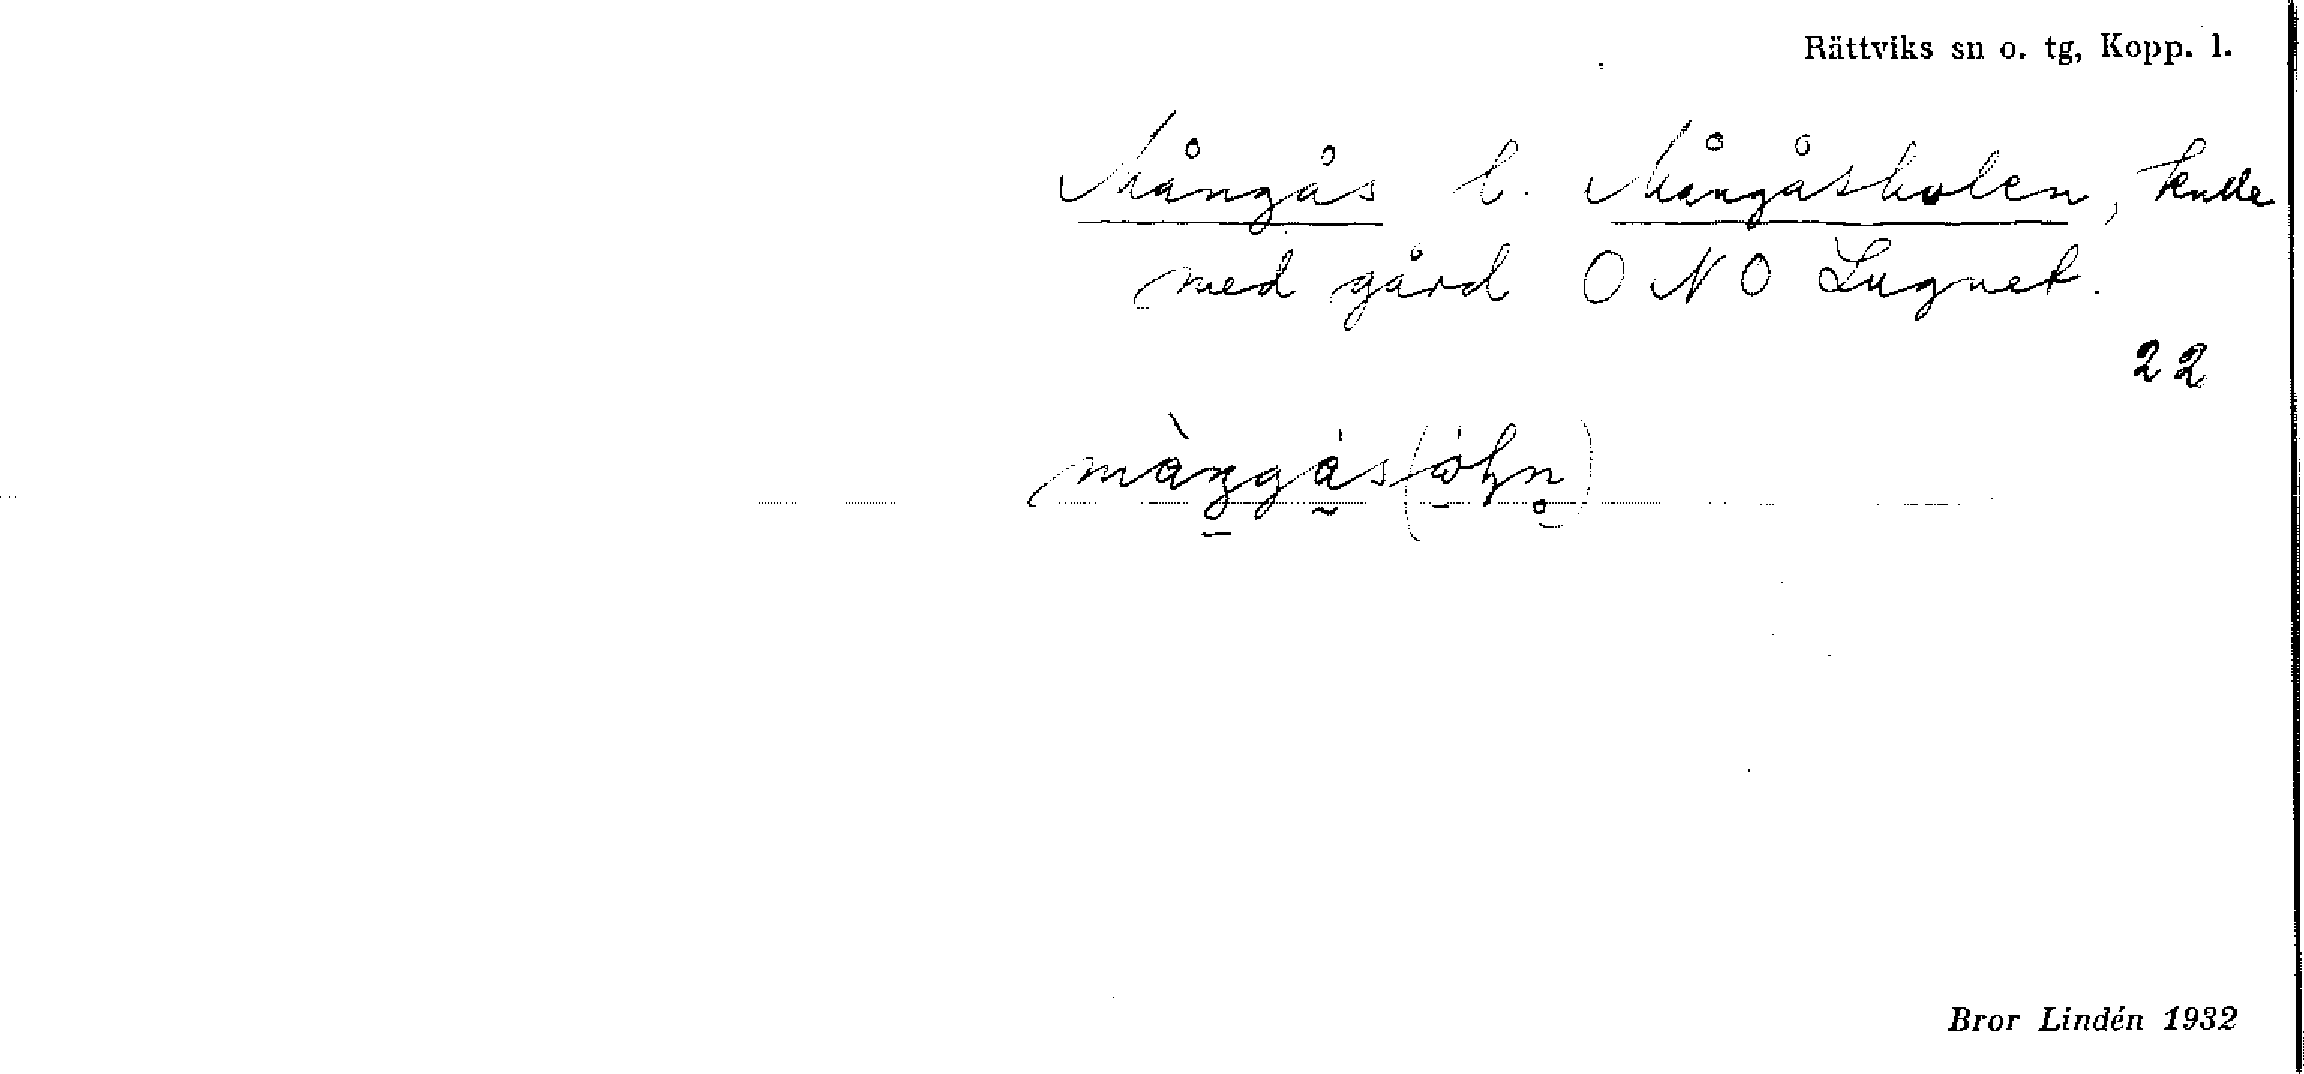 Rättviks sn o. tg, Kopp. l.
Mångås l. Mångåsholen, kulle
med gård O N O Lugnet.
22
Bror Lindén 1932